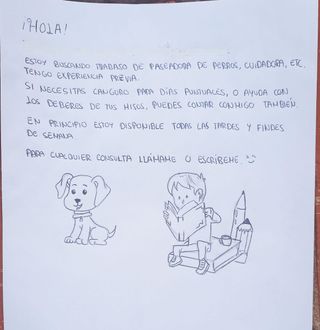 ¡HOLA!
ESTOY BUSCANDO TRABAJO DE PASEADORA DE PERROS, CUIDADORA, ETC.
TENGO EXPERIENCIA PREVIA.
SI NECESITAS CANGURO PARA DÍAS PUNTUALES, O AYUDA CON
LOS DEBERES DE TUS HIJOS, PUEDES CONTAR CONMIGO TAMBIÉN.
EN PRINCIPIO ESTOY DISPONIBLE TODAS LAS TARDES Y FINDES
DE SEMANA.
PARA CUALQUIER CONSULTA LLÁMAME O ESCRÍBEME.